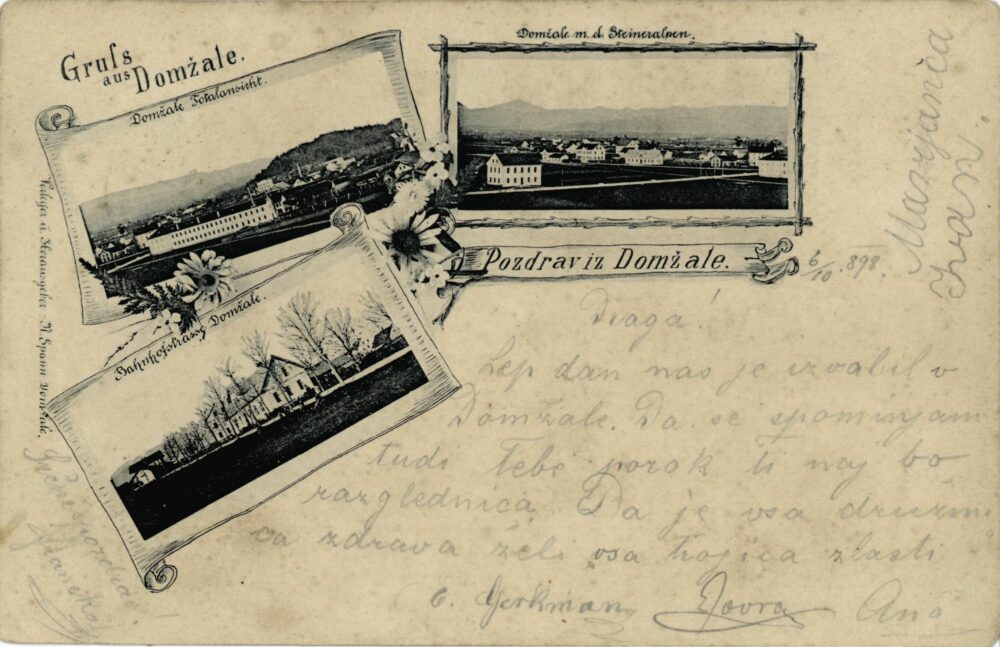 Gruſs
aus Domžale.
Domžale Totalansicht.
Domžale m. d. Steineralpen.
Bahnhofstrasse Domžale.
Pozdrav iz Domžale.
Verlag u. Herausgeber M. Spann Domžale.
6/10 898.
Draga!
Lep dan nas je izvabil v
Domžale. Da se spominjam
tudi Tebe porok ti naj bo
razglednica. Da je vsa družini
ca zdrava želi vsa trojica zlasti
Gerkman Ana
Marijanca
Ivan.
pozdrav!